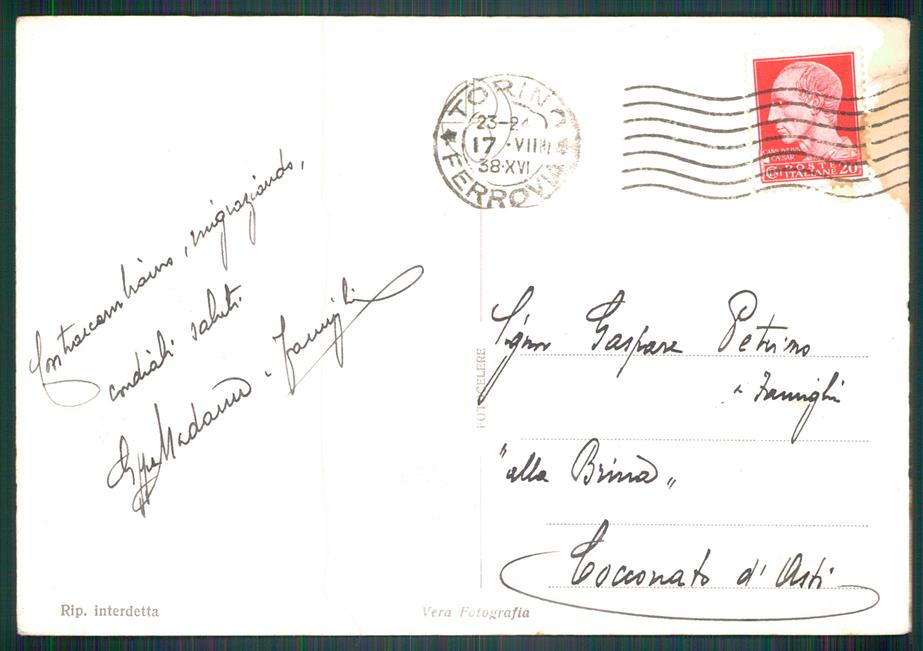 TORINO
23-24
17 · VIII
38·XVI
FERROVIA
CAIVS IVLIVS
CAESAR
POSTE
ITALIANE 20
Contraccambiamo, ringraziando,
cordiali saluti.
Madama e Famiglia
Signor Gaspare Petrino
e Famiglia
"alla Brina"
Cocconato d'Asti
FOTOCELERE
Rip. interdetta
Vera Fotografia